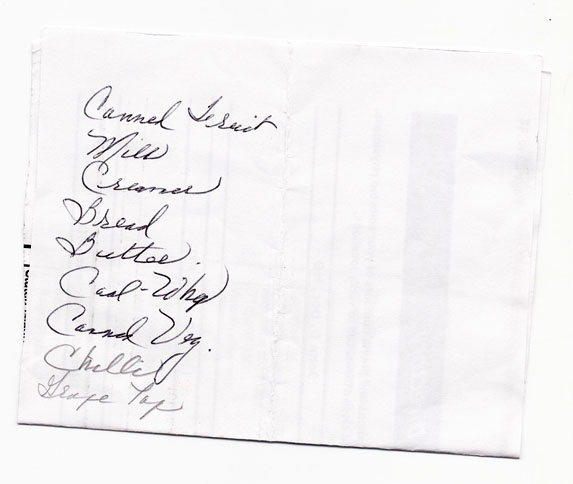 Canned Fruit
Milk
Creamer
Bread
Butter.
Cool-Whip
Canned Veg.
Chilli
Grape